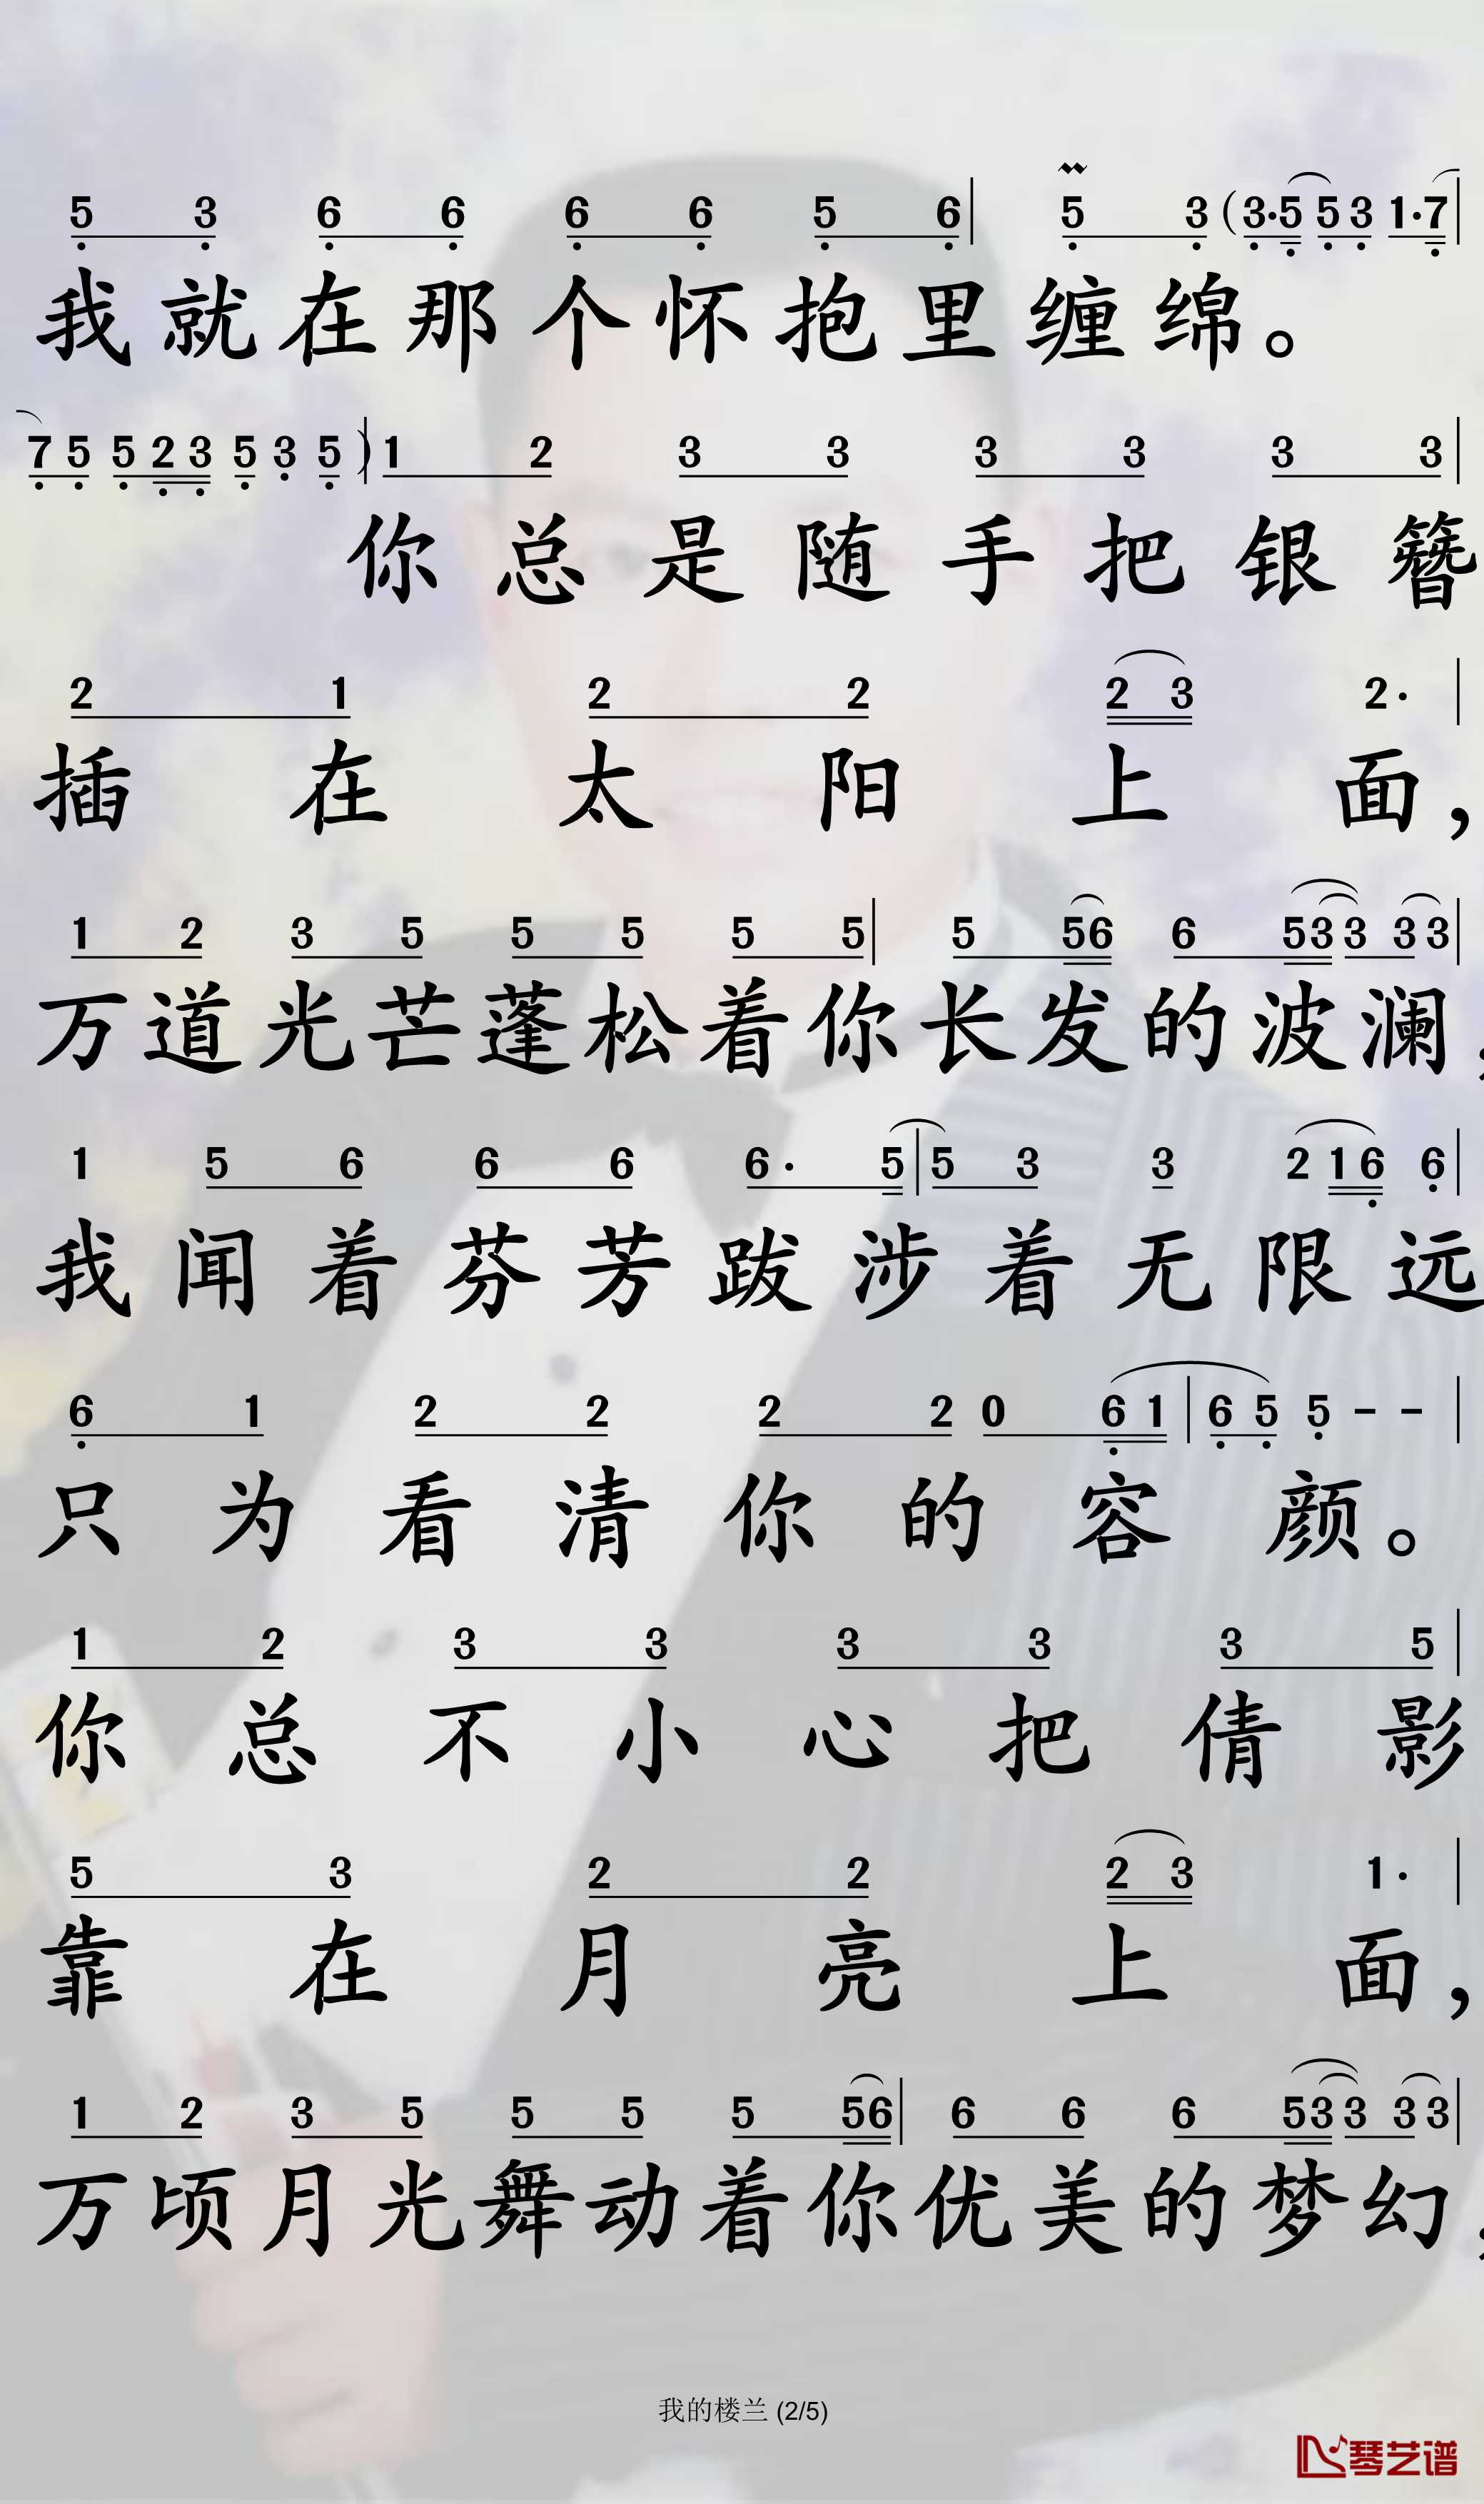 5 3 6 6 6 6 5 6 | 5 3 (3·5 5 3 1·7 |
我就在那个怀抱里缠绵。
7 5 5 2 3 5 3 5 ) | 1 2 3 3 3 3 3 3 |
你总是随手把银簪
2 1 2 2 2 3 2· |
插在太阳上面，
1 2 3 5 5 5 5 5 | 5 56 6 53 3 3 3 |
万道光芒蓬松着你长发的波澜，
1 5 6 6 6 6· 5 | 5 3 3 2 1 6 6 |
我闻着芬芳跋涉着无限远
6 1 2 2 2 2 0 6 1 | 6 5 5 - - |
只为看清你的容颜。
1 2 3 3 3 3 3 5 |
你总不小心把倩影
5 3 2 2 2 3 1· |
靠在月亮上面，
1 2 3 5 5 5 5 56 | 6 6 6 53 3 3 3 |
万顷月光舞动着你优美的梦幻，
我的楼兰 (2/5)
琴艺谱